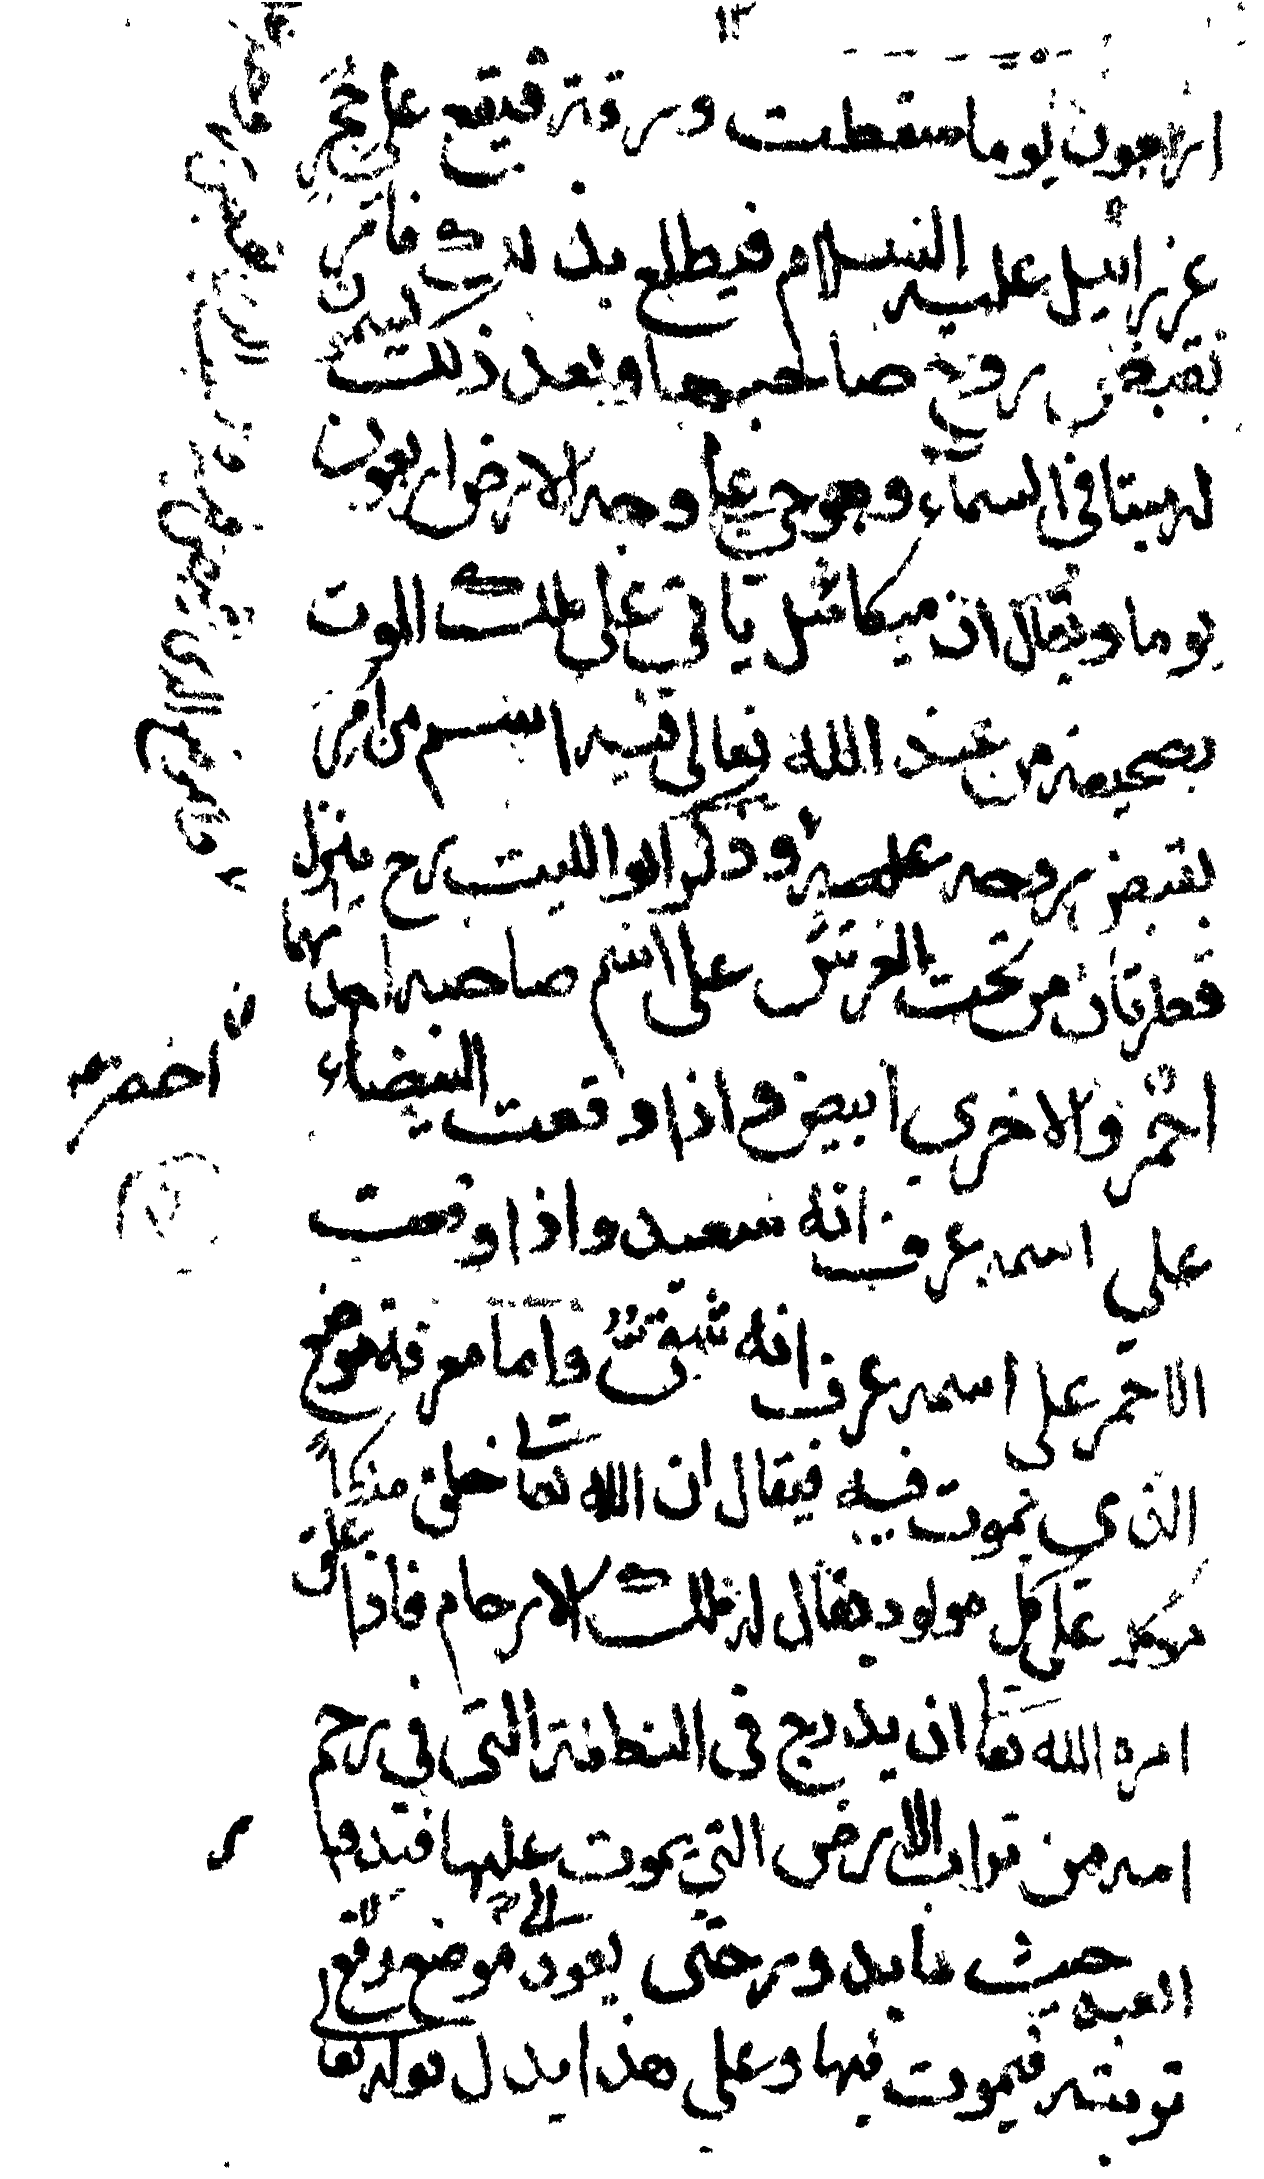 ١٣
اربعون يوما سقطت ورقة فيقع على حجر
عزرائيل عليه السلام فيطلع بذلك فأمر
بقبض روح صاحبها وبعد ذلك يسمى
له ميتا في السماء وهو حي على وجه الارض اربعون
يوما ويقال ان ميكائيل يأتي على ملك الموت
بصحيفة من عند الله تعالى فيه اسم من أمر
بقبض روحه عليه وذكر ابو الليث رح ينزل
قطرتان من تحت العرش على اسم صاحبه احدهما
احمر والاخرى ابيض واذا وقعت البيضاء
على اسمه عرف انه سعيد واذا وقعت
الاحمر على اسمه عرف انه شقي واما معرفة موضع
الذي يموت فيه فيقال ان الله تعا خلق ملكا
موكلا على كل مولود يقال له ملك الارحام فاذا خلق
امره الله تعا ان يدرج في النطفة التي في رحم
امه من تراب الارض التي يموت عليها فيدور
العبد حيث ما يدور حتى يعود الى موضع رفع
تربته فيموت فيها وعلى هذا يدل قوله تعا
ن
اخضر